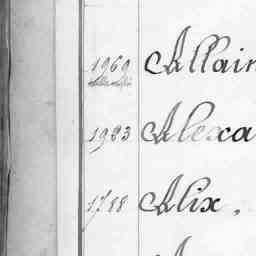 1969 Allain
1923 Alexa
1788 Alix,